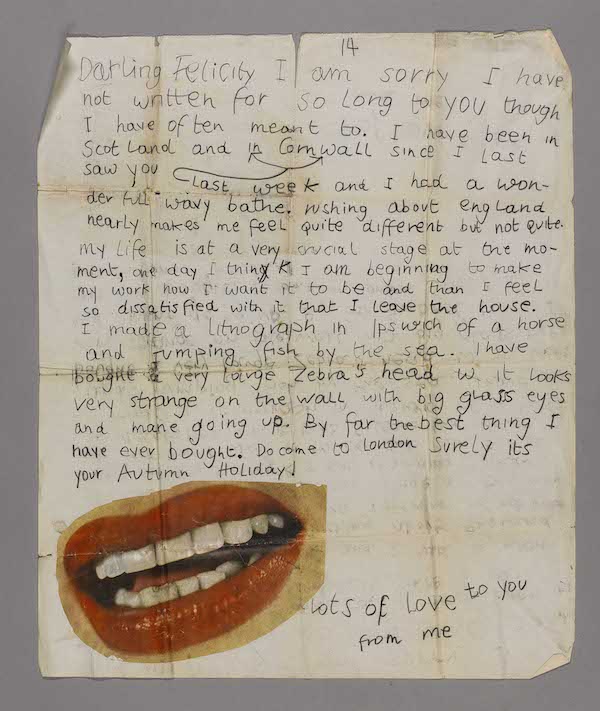 14
Darling Felicity I am sorry I have
not written for so long to you though
I have often meant to. I have been in
Scotland and in Cornwall since I last
saw you
last week and I had a won-
derfull wavy bathe. rushing about england
nearly makes me feel quite different but not quite.
my life is at a very crucial stage at the mo-
ment, one day I think I am beginning to make
my work how I want it to be and than I feel
so dissatisfied with it that I leave the house.
I made a lithograph in Ipswich of a horse
and jumping fish by the sea. I have
bought a very large Zebra's head w it looks
very strange on the wall with big glass eyes
and mane going up. By far the best thing I
have ever bought. Do come to London surely its
your Autumn Holiday!
lots of love to you
from me